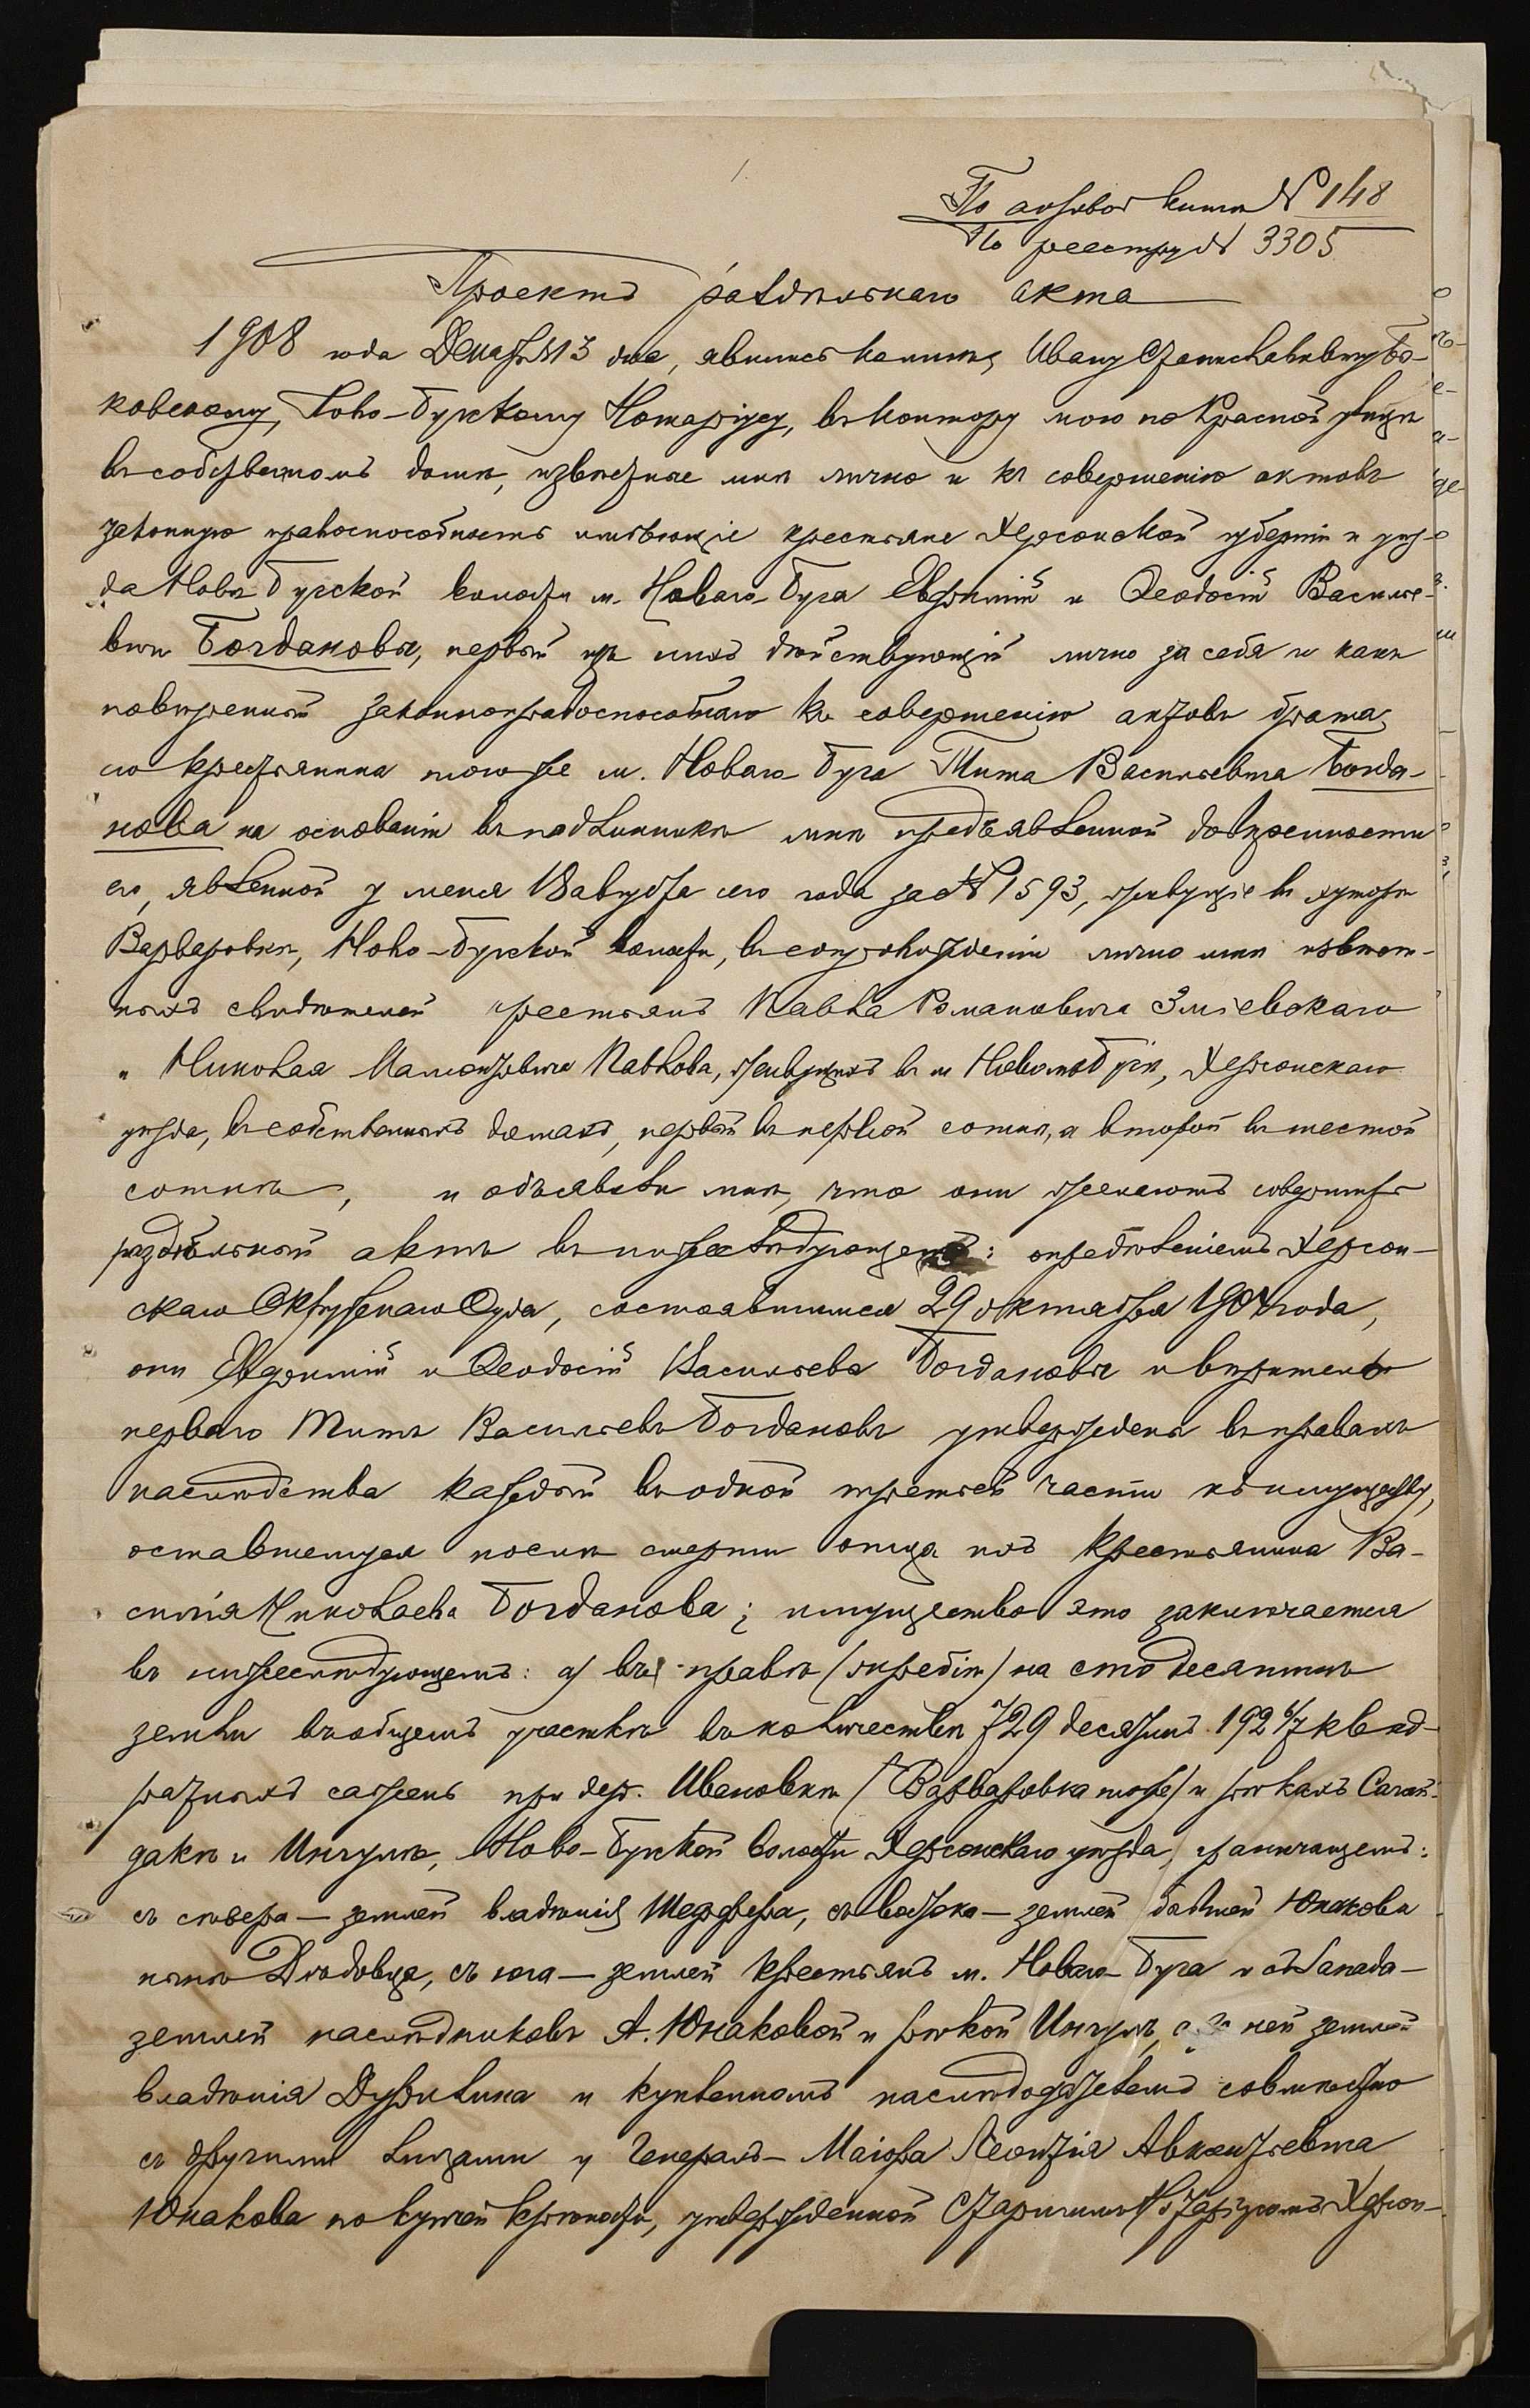 По актовой книгѣ № 148
По реестру № 3305
Проектъ раздѣльнаго акта
1908 года Декабря 13 дня, явились ко мнѣ, Ивану Станиславовичу
ковскому, Ново-Бугскому Нотаріусу, въ контору мою по Красной улицѣ
въ собственномъ домѣ, извѣстные мнѣ лично и къ совершенію актовъ
законную правоспособность имѣющіе крестьяне Херсонской губерніи и уѣз-
да Ново-Бугской волости м. Новаго-Буга Евфимій и Ѳеодосій Василье-
вичи Богдановы, первый изъ нихъ дѣйствующій лично за себя и какъ
повѣренный законноправоспособнаго къ совершенію актовъ брата
его крестьянина того же м. Новаго-Буга Тита Васильевича Богда-
нова на основаніи въ подлинникѣ мнѣ предъявленной довѣренности
его, явленной у меня августа сего года за № 1593, живущіе въ хуторѣ
Варваровкѣ, Ново-Бугской волости, въ сопровожденіи лично мнѣ извѣст-
ныхъ свидѣтелей крестьянъ Павла Романовича Зміевскаго
и Николая Павлова, живущихъ въ м. Новомъ-Бугѣ, Херсонскаго
уѣзда, въ собственныхъ домахъ, первый въ первой сотнѣ, а второй въ шестой
сотнѣ, и объявили мнѣ, что они желаютъ совершить
раздѣльный актъ въ нижеслѣдующемъ: опредѣленіемъ Херсон-
скаго Окружнаго Суда, состоявшимся 29 октября 1907 года,
они Евфимій и Ѳеодосій Васильевы Богдановы и вѣритель
перваго Титъ Васильевъ Богдановъ утверждены въ правахъ
наслѣдства каждый въ одной третьей части къ имуществу,
оставшемуся послѣ смерти отца ихъ крестьянина Ва-
силія Николаева Богданова; имущество это заключается
въ нижеслѣдующемъ: а) въ правѣ (жребіи) на сто десятинъ
земли въ общемъ участкѣ въ количествѣ 729 десятинъ 192 6/7 квад-
ратныхъ сажень при дер. Ивановкѣ (Варваровка тоже) и рѣкахъ Сагай-
дакѣ и Ингулѣ, Ново-Бугской волости Херсонскаго уѣзда, граничащемъ:
съ сѣвера — землей владѣнія Шеффера, съ востока — землей бывшей Юнакова
нынѣ Дѣдовца, съ юга — землей крестьянъ м. Новаго-Буга и съ запада —
землей наслѣдниковъ А. Юнаковой и рѣкой Ингулъ, а за ней землей
владѣнія и купленномъ наслѣдодателемъ совмѣстно
съ другими лицами у Генералъ-Маіора Леонтія Авксентьевича
Юнакова по купчей крѣпости, утвержденной Старшимъ Нотаріусомъ Херсон-